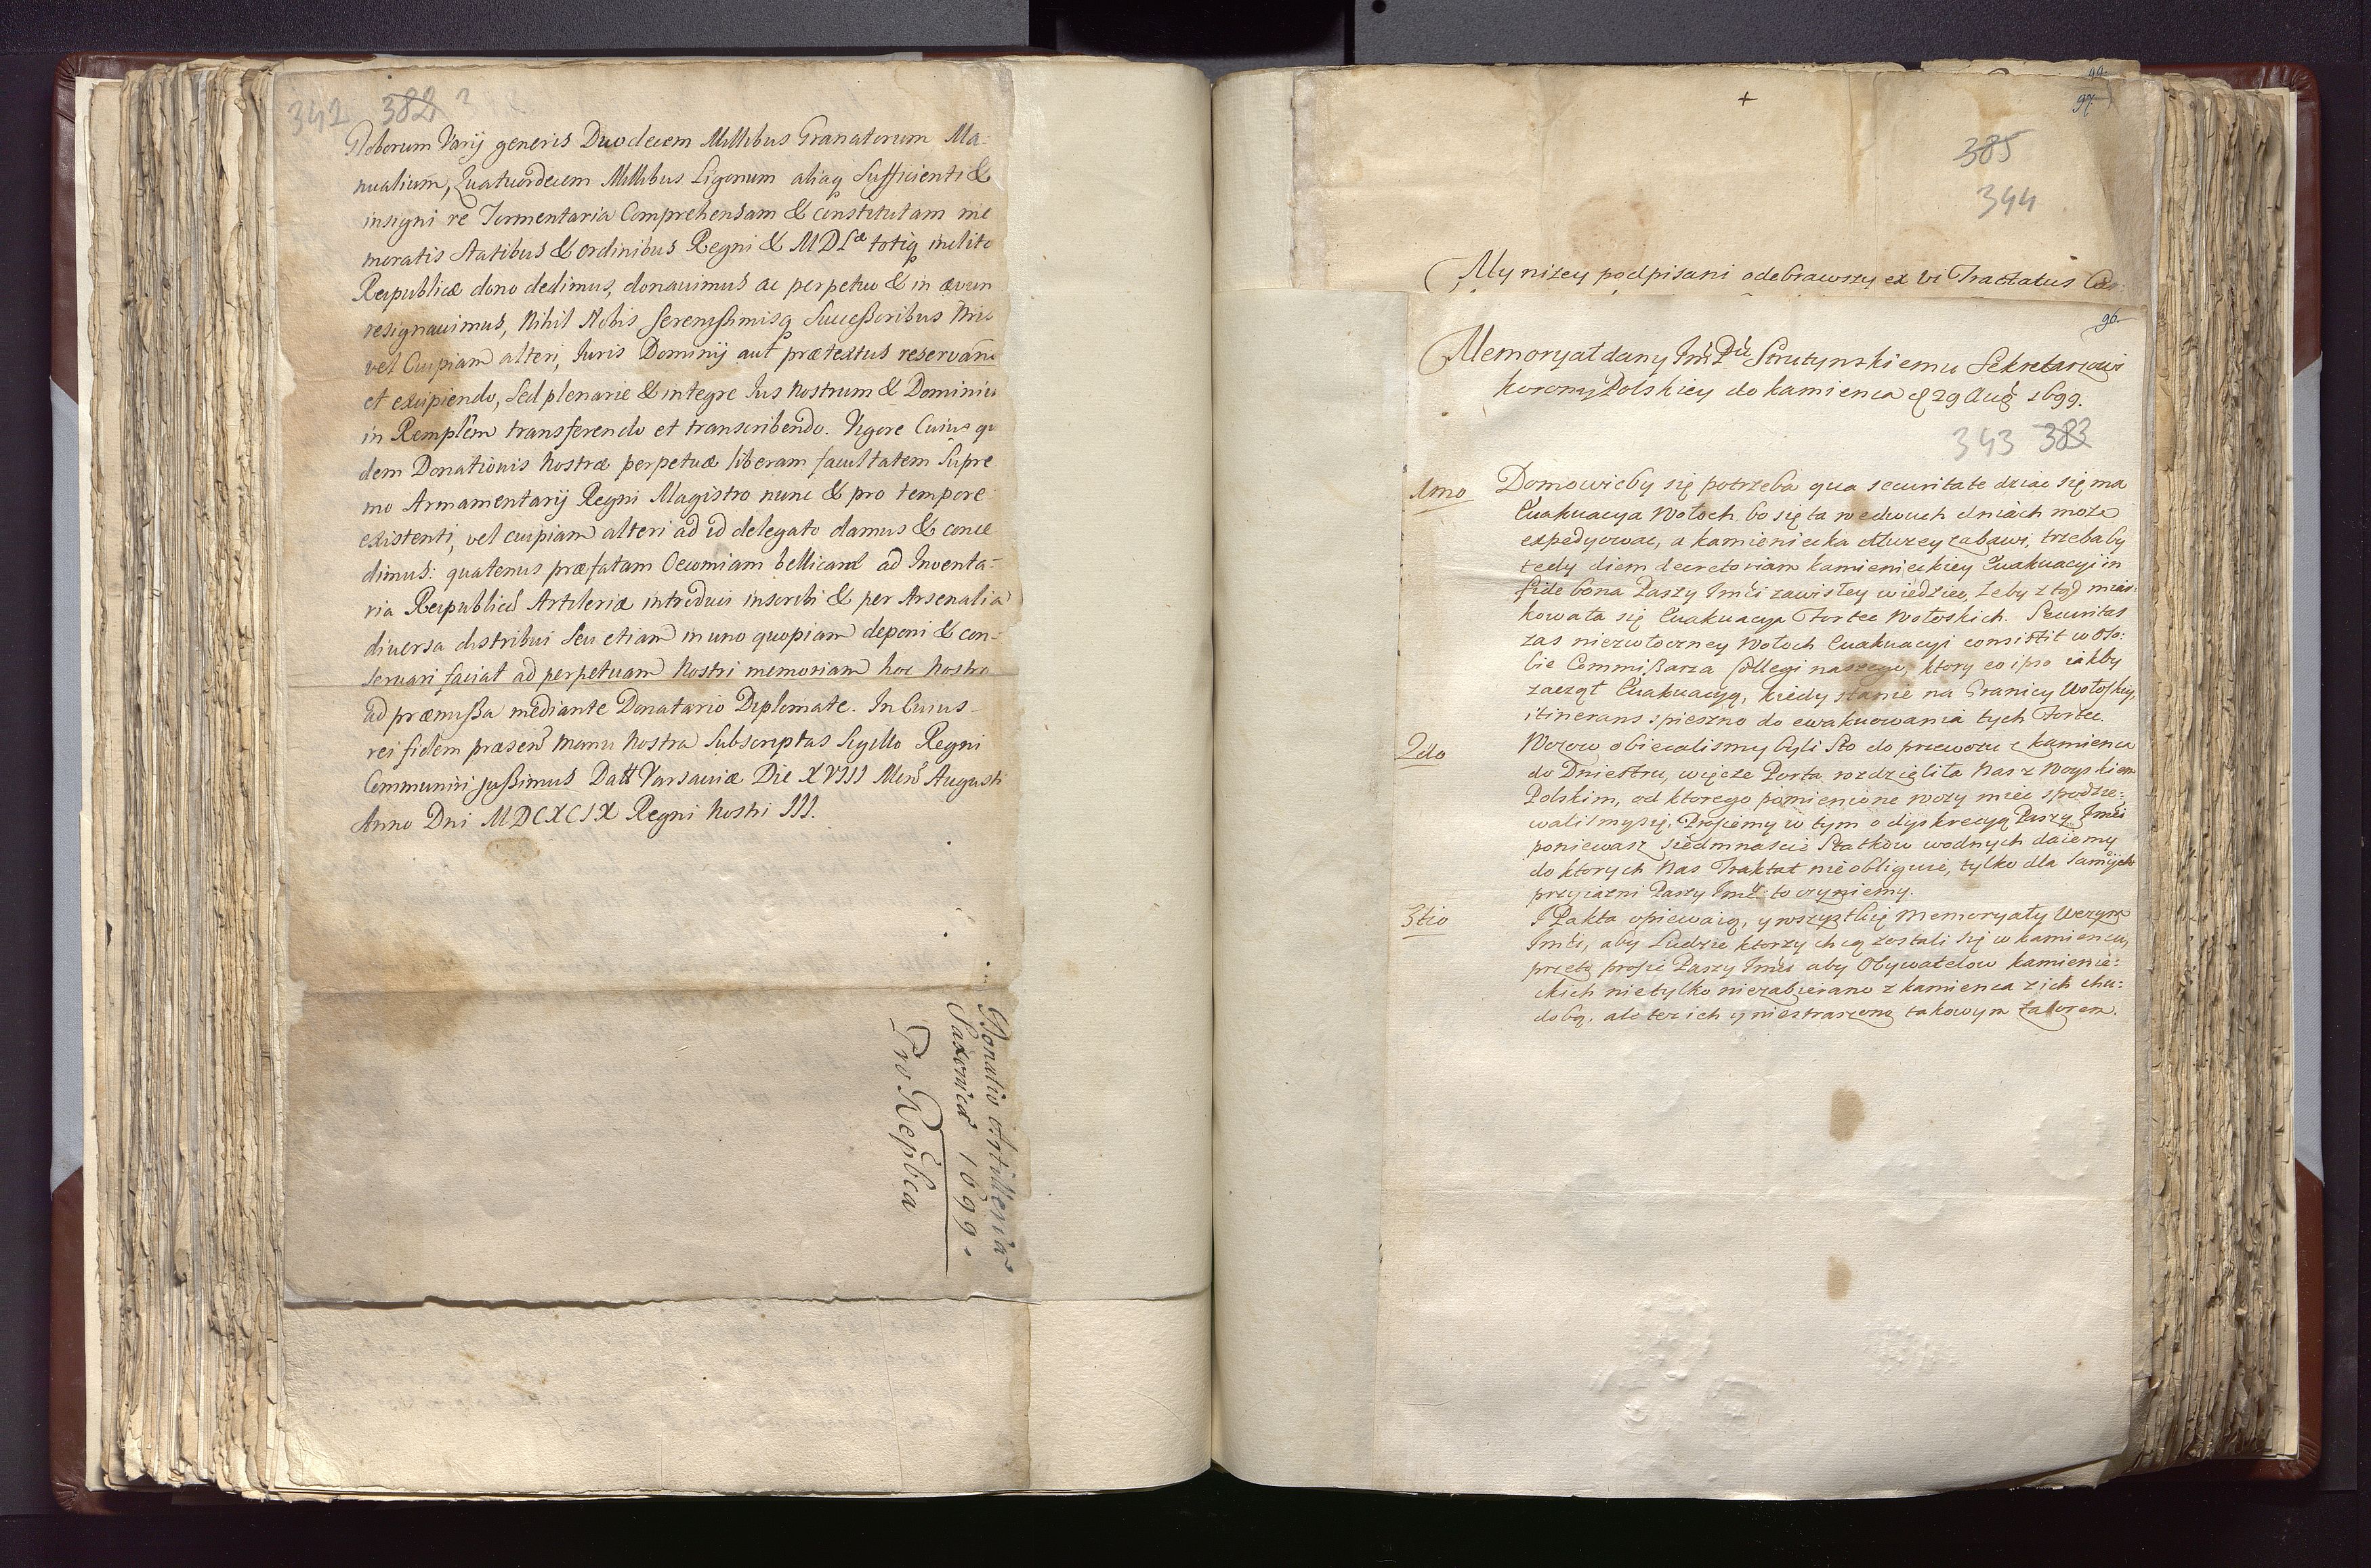 342 382
Globorum Varij generis Duodecem Millibus Granatorum Ma-
nualium, Quatuordecem Millibus Ligonum aliaq sufficienti &
insigni re Tormentaria Comprehensam & constitutam me
moratis statibus & ordinibus Regni & MDLæ totiq inclitæ
Reipublicæ dono dedimus, donauimus ac perpetuo & in ævum
resignauimus, Nihil Nobis Serenissimisq Successoribus Nris
vel Cuipiam alteri, Iuris Dominij aut prætextus reservan
et excipiendo, sed plenarie & integre Ius Nostrum & Dominiu
in Remplem transferendo et transcribendo. Vigore Cuius qu
dem Donationis Nostræ perpetuæ liberam facultatem Supre
mo Armamentarij Regni Magistro nunc & pro tempore
existenti, vel cuipiam alteri ad id delegato damus & conce
dimus: quatenus præfatam Oeconomiam bellicam ad Inventa-
ria Reipublicæ Artileriæ introduci inscribi & per Arsenalia
diuersa distribui seu etiam in uno quopiam deponi & con-
seruari faciat ad perpetuam Nostri memoriam hoc Nostro
ad præmissa mediante Donatario Diplomate. In Cuius
rei fidem præsen manu Nostra Subscriptas Sigillo Regni
Communiri jussimus Datt Varsaviæ Die XVIII Mens Augusti
Anno Dni MDCXCIX Regni Nostri III.
Donatio Artilleriæ
Saxonicæ 1699.
Pro Repbca
97
385
344
My nizey podpisani odebrawszy ex vi Tractatus
96
Memoryał dany Jmć Pu Scrutynskiemu Sekretarzowi
Korony Polskiey do Kamienca d 29 Aug 1699.
343 383
1mo Domowicby się potrzeba qua securitate dziac się ma
Ewakuacya Wołoch, bo się ta we dwuch dniach moze
expedyowac, a kamieniecka dłuzey zabawi, trzebaby
tedy diem decretoriam kamienieckiey Ewakuacyi in
fide bona Paszy Jmći zawisłey wiedziec, zeby z tąd miar-
kowała się Ewakuacya Fortec Wołoskich. Securitas
zas niezwłoczney Wołoch Ewakuacyi consistit w Oso-
bie Commissarza Collegi naszego, ktory eo ipso iakby
zaczął Ewakuacyą, kiedy stanie na Granicy Wołoskiey,
itinerans spieszno do ewakuowania tych Fortec.
2do Wozow obiecalismy byli Sto do przewozu z Kamienca
do Dniestru, więcze Porta rozdzieliła Nas z Woyskiem
Polskim, od ktorego pomienione wozy miec spodzie-
walismy się, Prosiemy w tym o dyskrecyą Paszy Jmći
poniewasz siedmnascie Statkow wodnych daiemy
do ktorych Nas Traktat nie obliguie, tylko dla samey
przyiazni Paszy Jmći to czyniemy.
3tio I Pakta opiewaią, y wszystkie Memoryały Wezyra
Jmći, aby Ludzie ktorzy chcą zostali się w Kamiencu,
przeto prosić Paszy Jmći aby Obywatelow Kamienie-
ckich nie tylko niezabierano z Kamienca z ich chu-
dobą, ale tez ich y niestraszono takowym